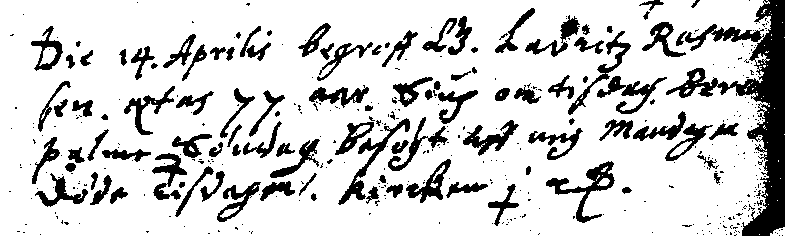 Die 14. Aprilis begroff Lauritz Rasmus
sen. ætas 77. aar. Siug om tisdag. Beret
palme Søndag besøgt aff mig Mandagen
døde Tisdagen. Kircken j